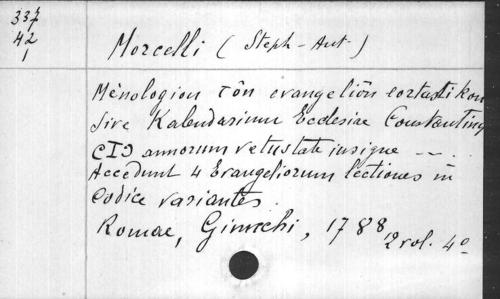 337
42
1
Morcelli (Steph-Ant-)
Mênologion tôn evangeliôn eortastikon
Sive Kalendarium Ecclesiae Constantinop
CIↃ annorum vetustate insigne — ..
Accedunt 4 Evangeliorum lectiones in
Codice variantes.
Romae, Giunchi, 1788
2 vol. 4o